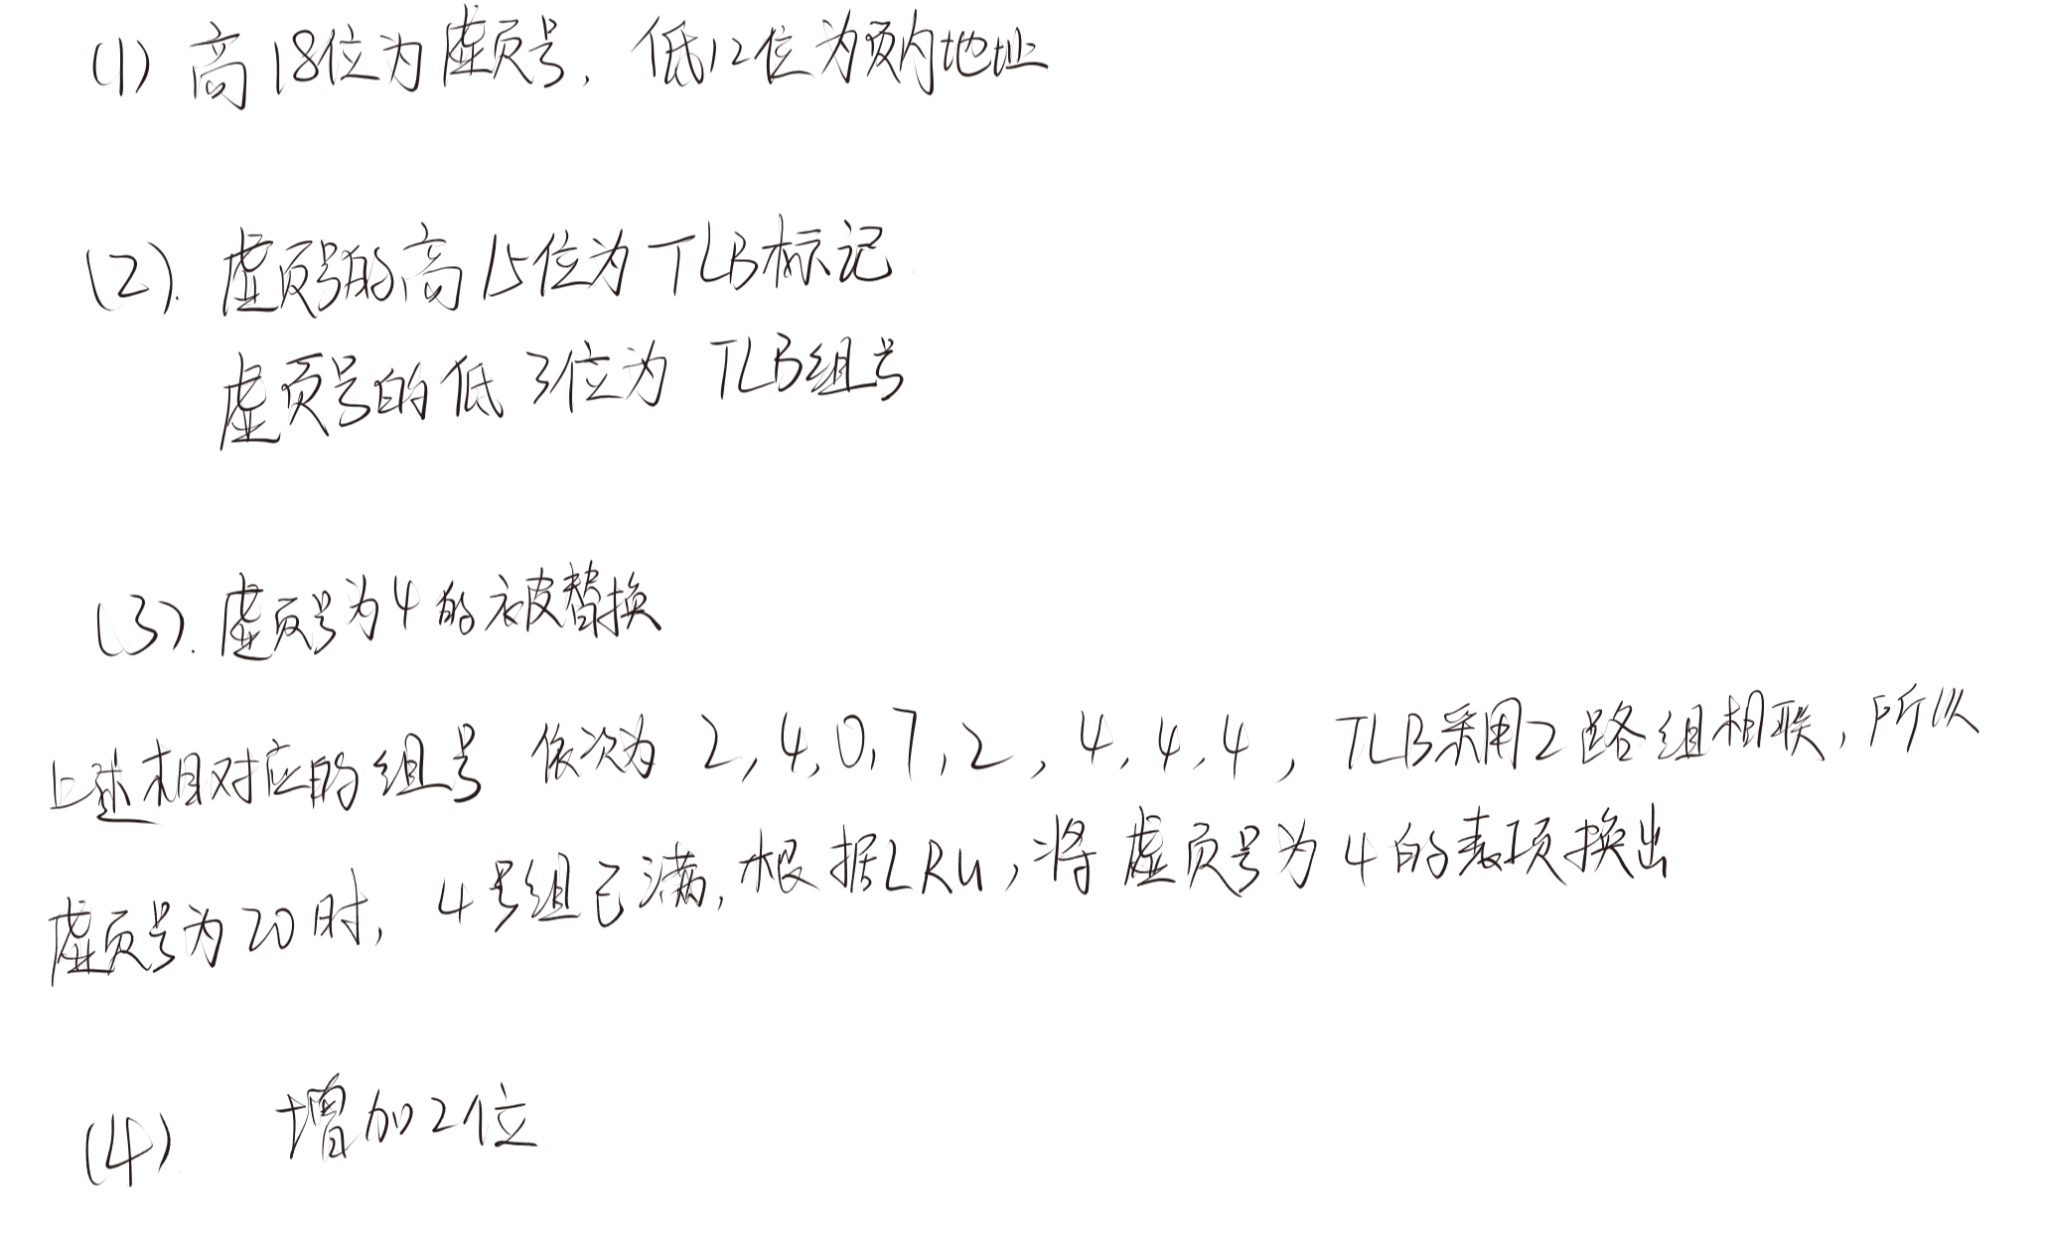 (1) 高18位为虚页号, 低12位为页内地址
(2). 虚页号的高15位为TLB标记
虚页号的低3位为 TLB组号
(3). 虚页号为4的被替换
上述相对应的组号 依次为 2,4,0,7,2,4,4,4, TLB采用2路组相联, 所以
虚页号为20时, 4号组已满, 根据LRU, 将虚页号为4的表项换出
(4) 增加2位